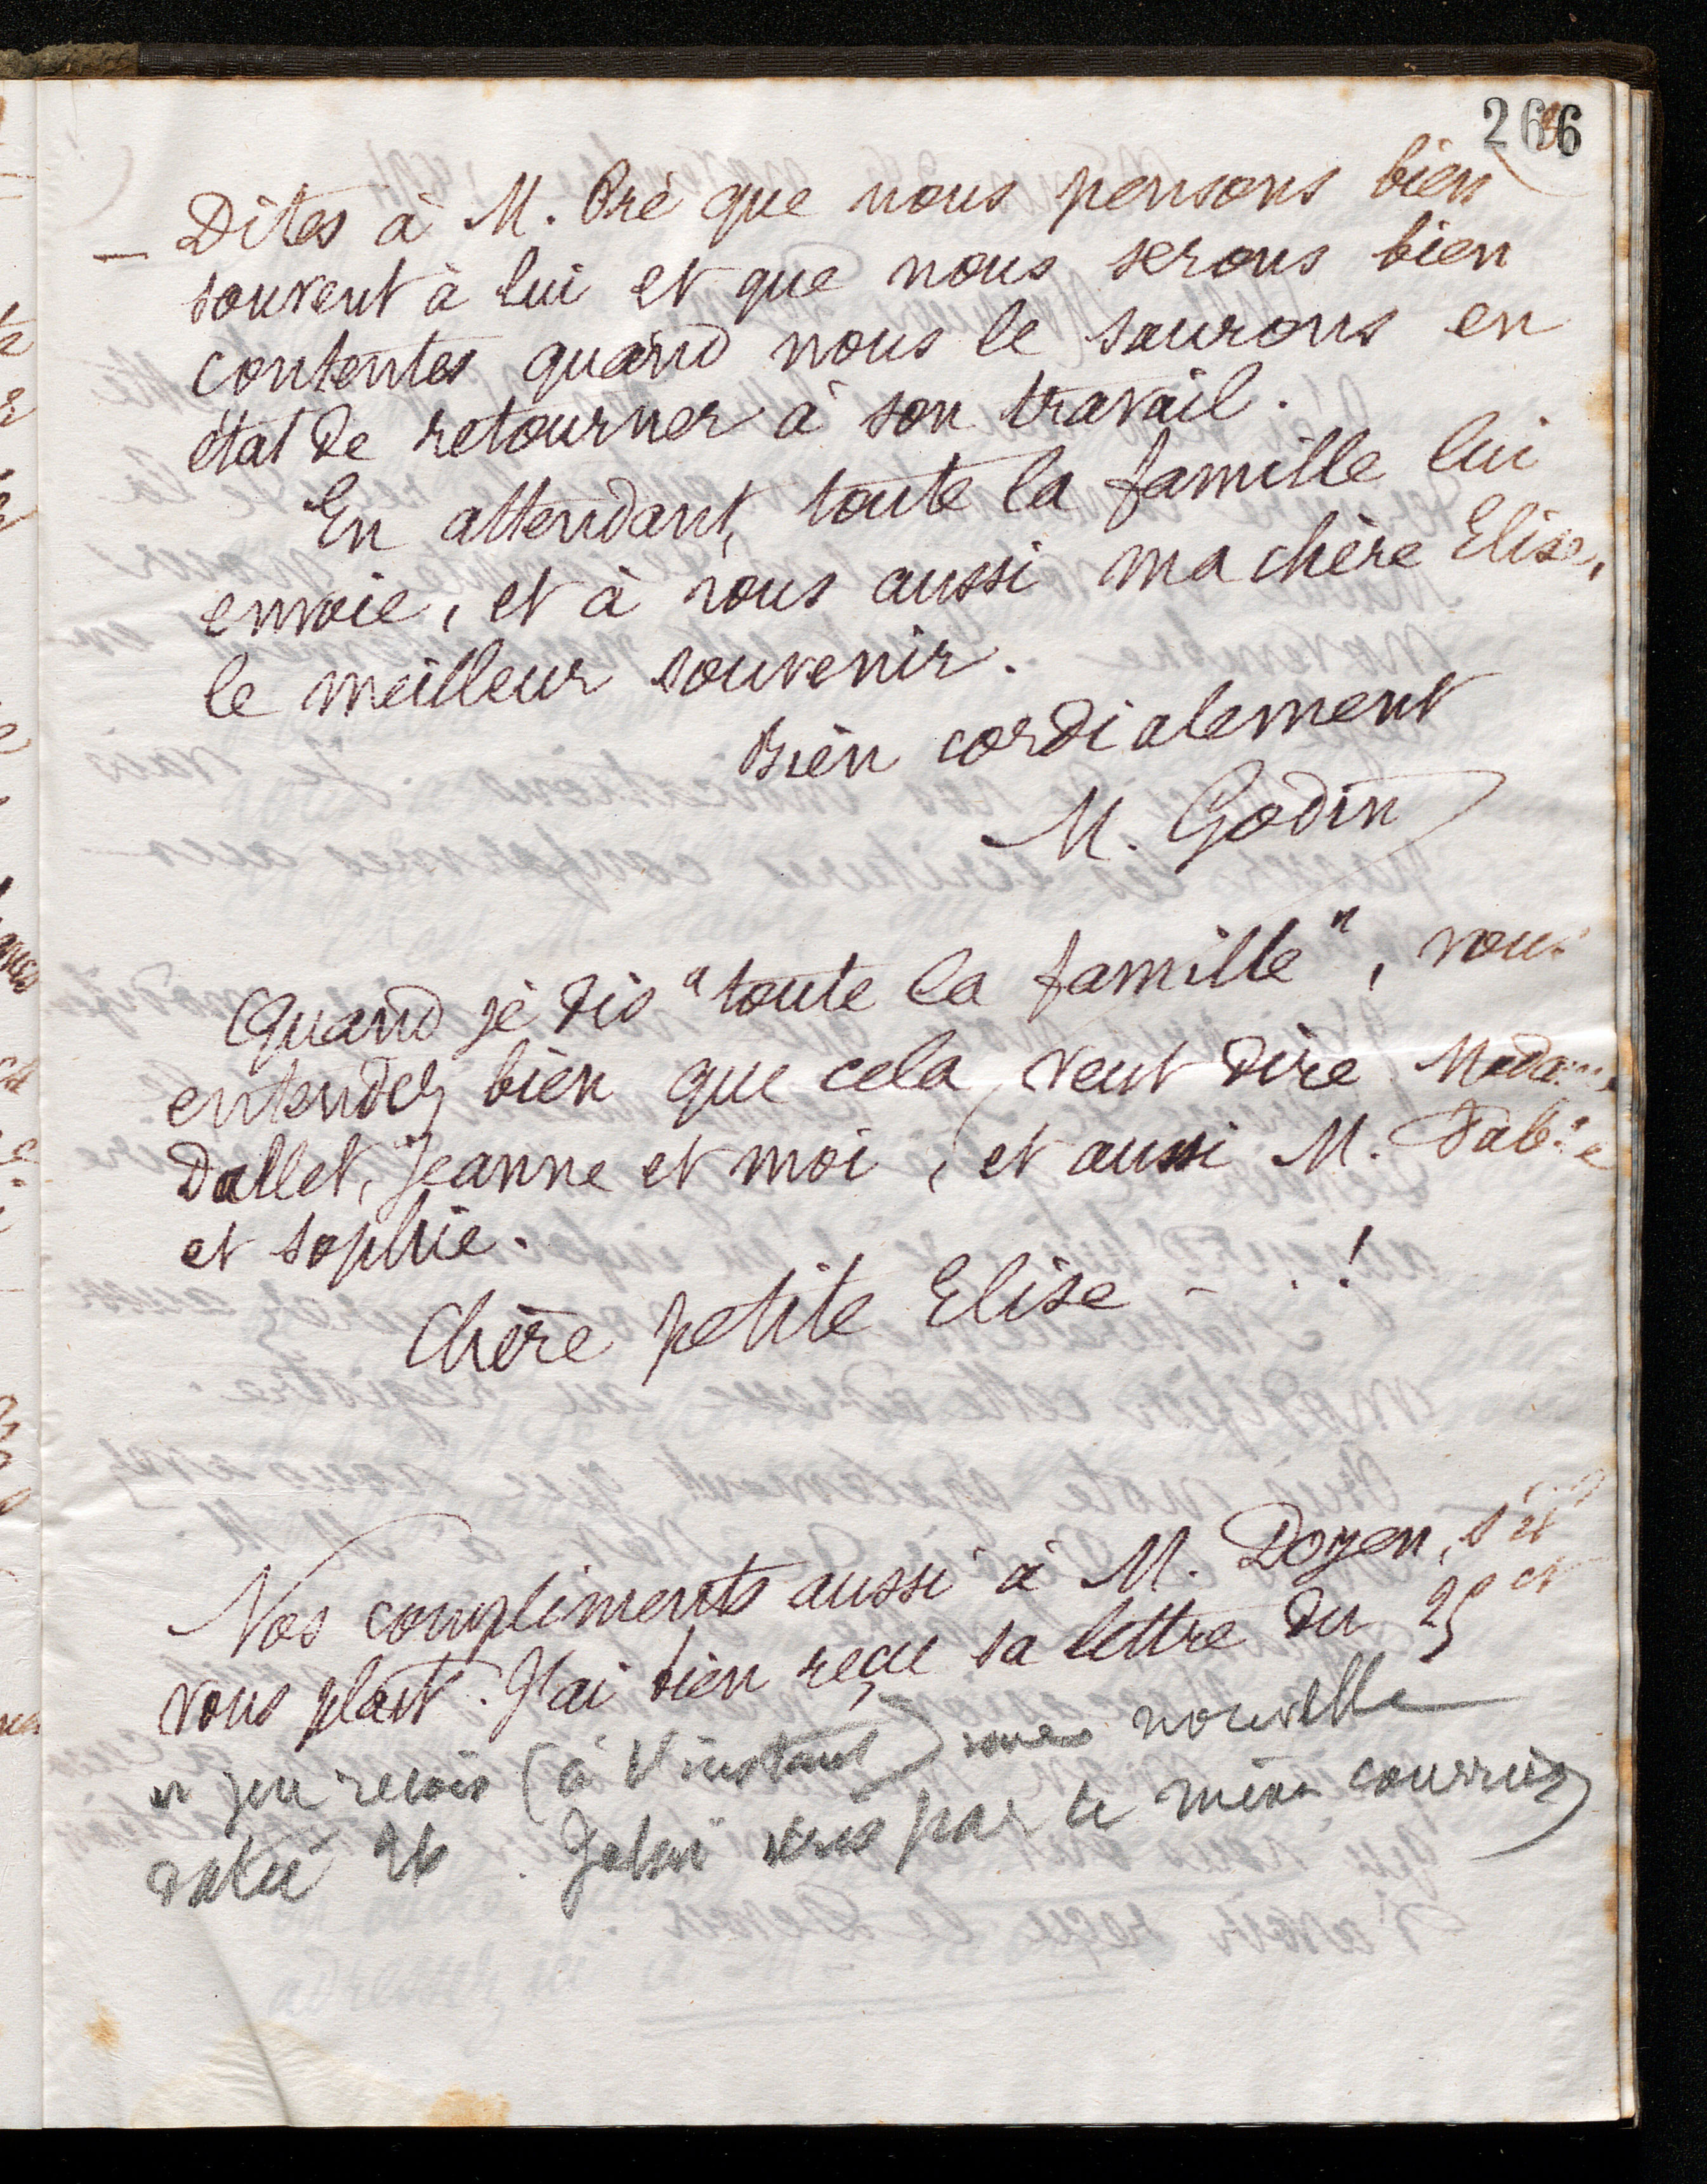 266
— Dites à M. Pré que nous pensons bien
souvent à lui et que nous serons bien
contentes quand nous le saurons en
état de retourner à son travail.
En attendant, toute la famille lui
envoie, et à vous aussi ma chère Elise,
le meilleur souvenir.
Bien cordialement
M. Godin
Quand je dis "toute la famille", vous
entendez bien que cela veut dire Madame
Dallet, Jeanne et moi, et aussi M. Fabre
et Sophie.
Chère petite Elise - . . !
Nos compliments aussi à M. Doyen, s'il
vous plaît. J'ai bien reçu sa lettre du 25 et
j'en reçois (à l'instant) une nouvelle
datée 26. Je lui écris par le même courrier